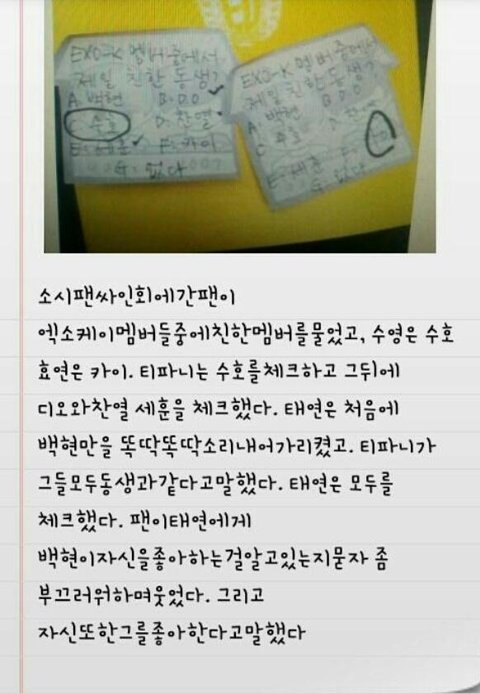 EXO-K 멤버중에서
제일 친한 동생?
A. 백현 B. D.O
수호 D. 찬열
E. 세훈 F. 카이
G. 없다
EXO-K 멤버중에서
제일 친한 동생?
A. 백현 B. D.O
C 수호 D. 찬
E. 세훈 F.
G. 없다
소시팬싸인회에간팬이
엑소케이멤버들중에친한멤버를물었고, 수영은 수호
효연은 카이. 티파니는 수호를체크하고 그뒤에
디오와찬열 세훈을 체크했다. 태연은 처음에
백현만을 똑딱똑딱소리내어가리켰고. 티파니가
그들모두동생과같다고말했다. 태연은 모두를
체크했다. 팬이태연에게
백현이자신을좋아하는걸알고있는지묻자 좀
부끄러워하며웃었다. 그리고
자신또한그를좋아한다고말했다